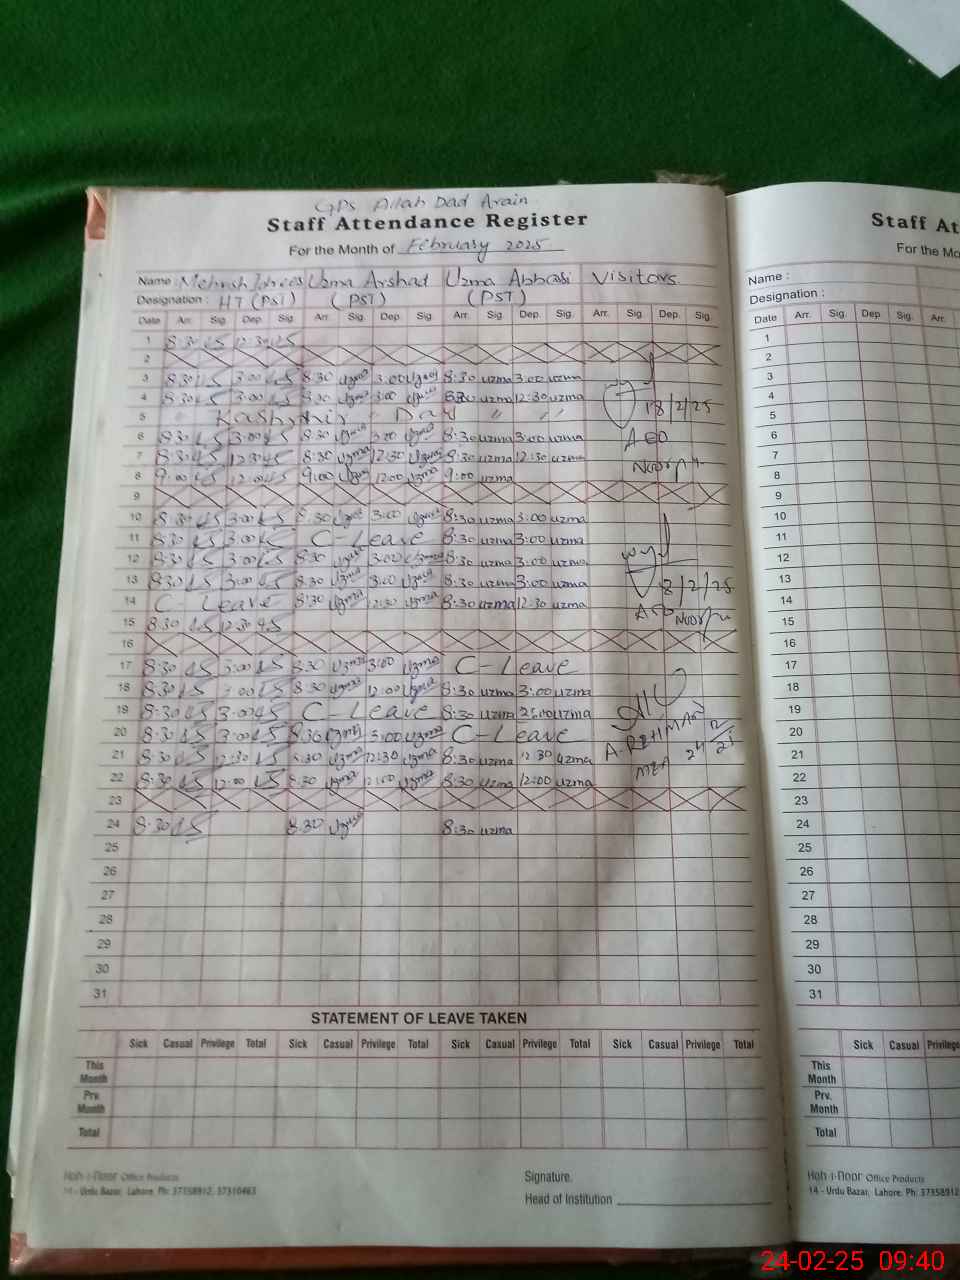 GPS Allah Dad Arain
Staff Attendance Register
For the Month of February 2025
Name Mehrish Idrees Uzma Arshad Uzma Abbasi Visitors
Designation : HT (PST) (PST) (PST)
Date Arr. Sig. Dep. Sig. Arr. Sig. Dep. Sig. Arr. Sig. Dep. Sig. Arr. Sig. Dep. Sig.
1 8:30 12:30
2
3 8:30 3:00 8:30 Uzma 3:00 Uzma 8:30 uzma 3:00 uzma
4 8:30 3:00 8:30 Uzma 3:00 Uzma 8:30 uzma 12:30 uzma
5 Kashmir Day " "
18/2/25
6 8:30 3:00 8:30 Uzma 3:00 Uzma 8:30 uzma 3:00 uzma AEO
7 8:30 12:30 8:30 Uzma 12:30 Uzma 8:30 uzma 12:30 uzma
8 9:00 12:00 9:00 Uzma 12:00 Uzma 9:00 uzma
9
10 8:30 3:00 8:30 Uzma 3:00 Uzma 8:30 uzma 3:00 uzma
11 8:30 3:00 C-Leave 8:30 uzma 3:00 uzma
12 8:30 3:00 8:30 Uzma 3:00 Uzma 8:30 uzma 3:00 uzma
13 8:30 3:00 8:30 Uzma 3:00 Uzma 8:30 uzma 3:00 uzma
18/2/25
14 C-Leave 8:30 Uzma 12:30 Uzma 8:30 uzma 12:30 uzma
AEO
15 8:30 12:30
16
17 8:30 3:00 8:30 Uzma 3:00 Uzma C-Leave
18 8:30 3:00 8:30 Uzma 12:00 Uzma 8:30 uzma 3:00 uzma
19 8:30 3:00 C-Leave 8:30 uzma uzma
20 8:30 3:00 8:30 Uzma 3:00 Uzma C-Leave
A. REHMAN
21 8:30 12:30 8:30 Uzma 12:30 Uzma 8:30 uzma 12:30 uzma
MEA 24/2/25
22 8:30 12:00 8:30 Uzma 12:00 Uzma 8:30 uzma 12:00 uzma
23
24 8:30 8:30 Uzma 8:30 uzma
25
26
27
28
29
30
31
STATEMENT OF LEAVE TAKEN
Sick Casual Privilege Total Sick Casual Privilege Total Sick Casual Privilege Total Sick Casual Privilege Total
This Month
Prv. Month
Total
Signature.
Head of Institution
Hoh-i-Noor Office Products
14 - Urdu Bazar, Lahore. Ph: 37358912, 37310463
Staff At
For the Mo
Name :
Designation :
Date Arr. Sig. Dep. Sig. Arr.
1
2
3
4
5
6
7
8
9
10
11
12
13
14
15
16
17
18
19
20
21
22
23
24
25
26
27
28
29
30
31
Sick Casual Privilege
This Month
Prv. Month
Total
Hoh-i-Noor Office Products
14 - Urdu Bazar, Lahore. Ph: 37358912
24-02-25 09:40